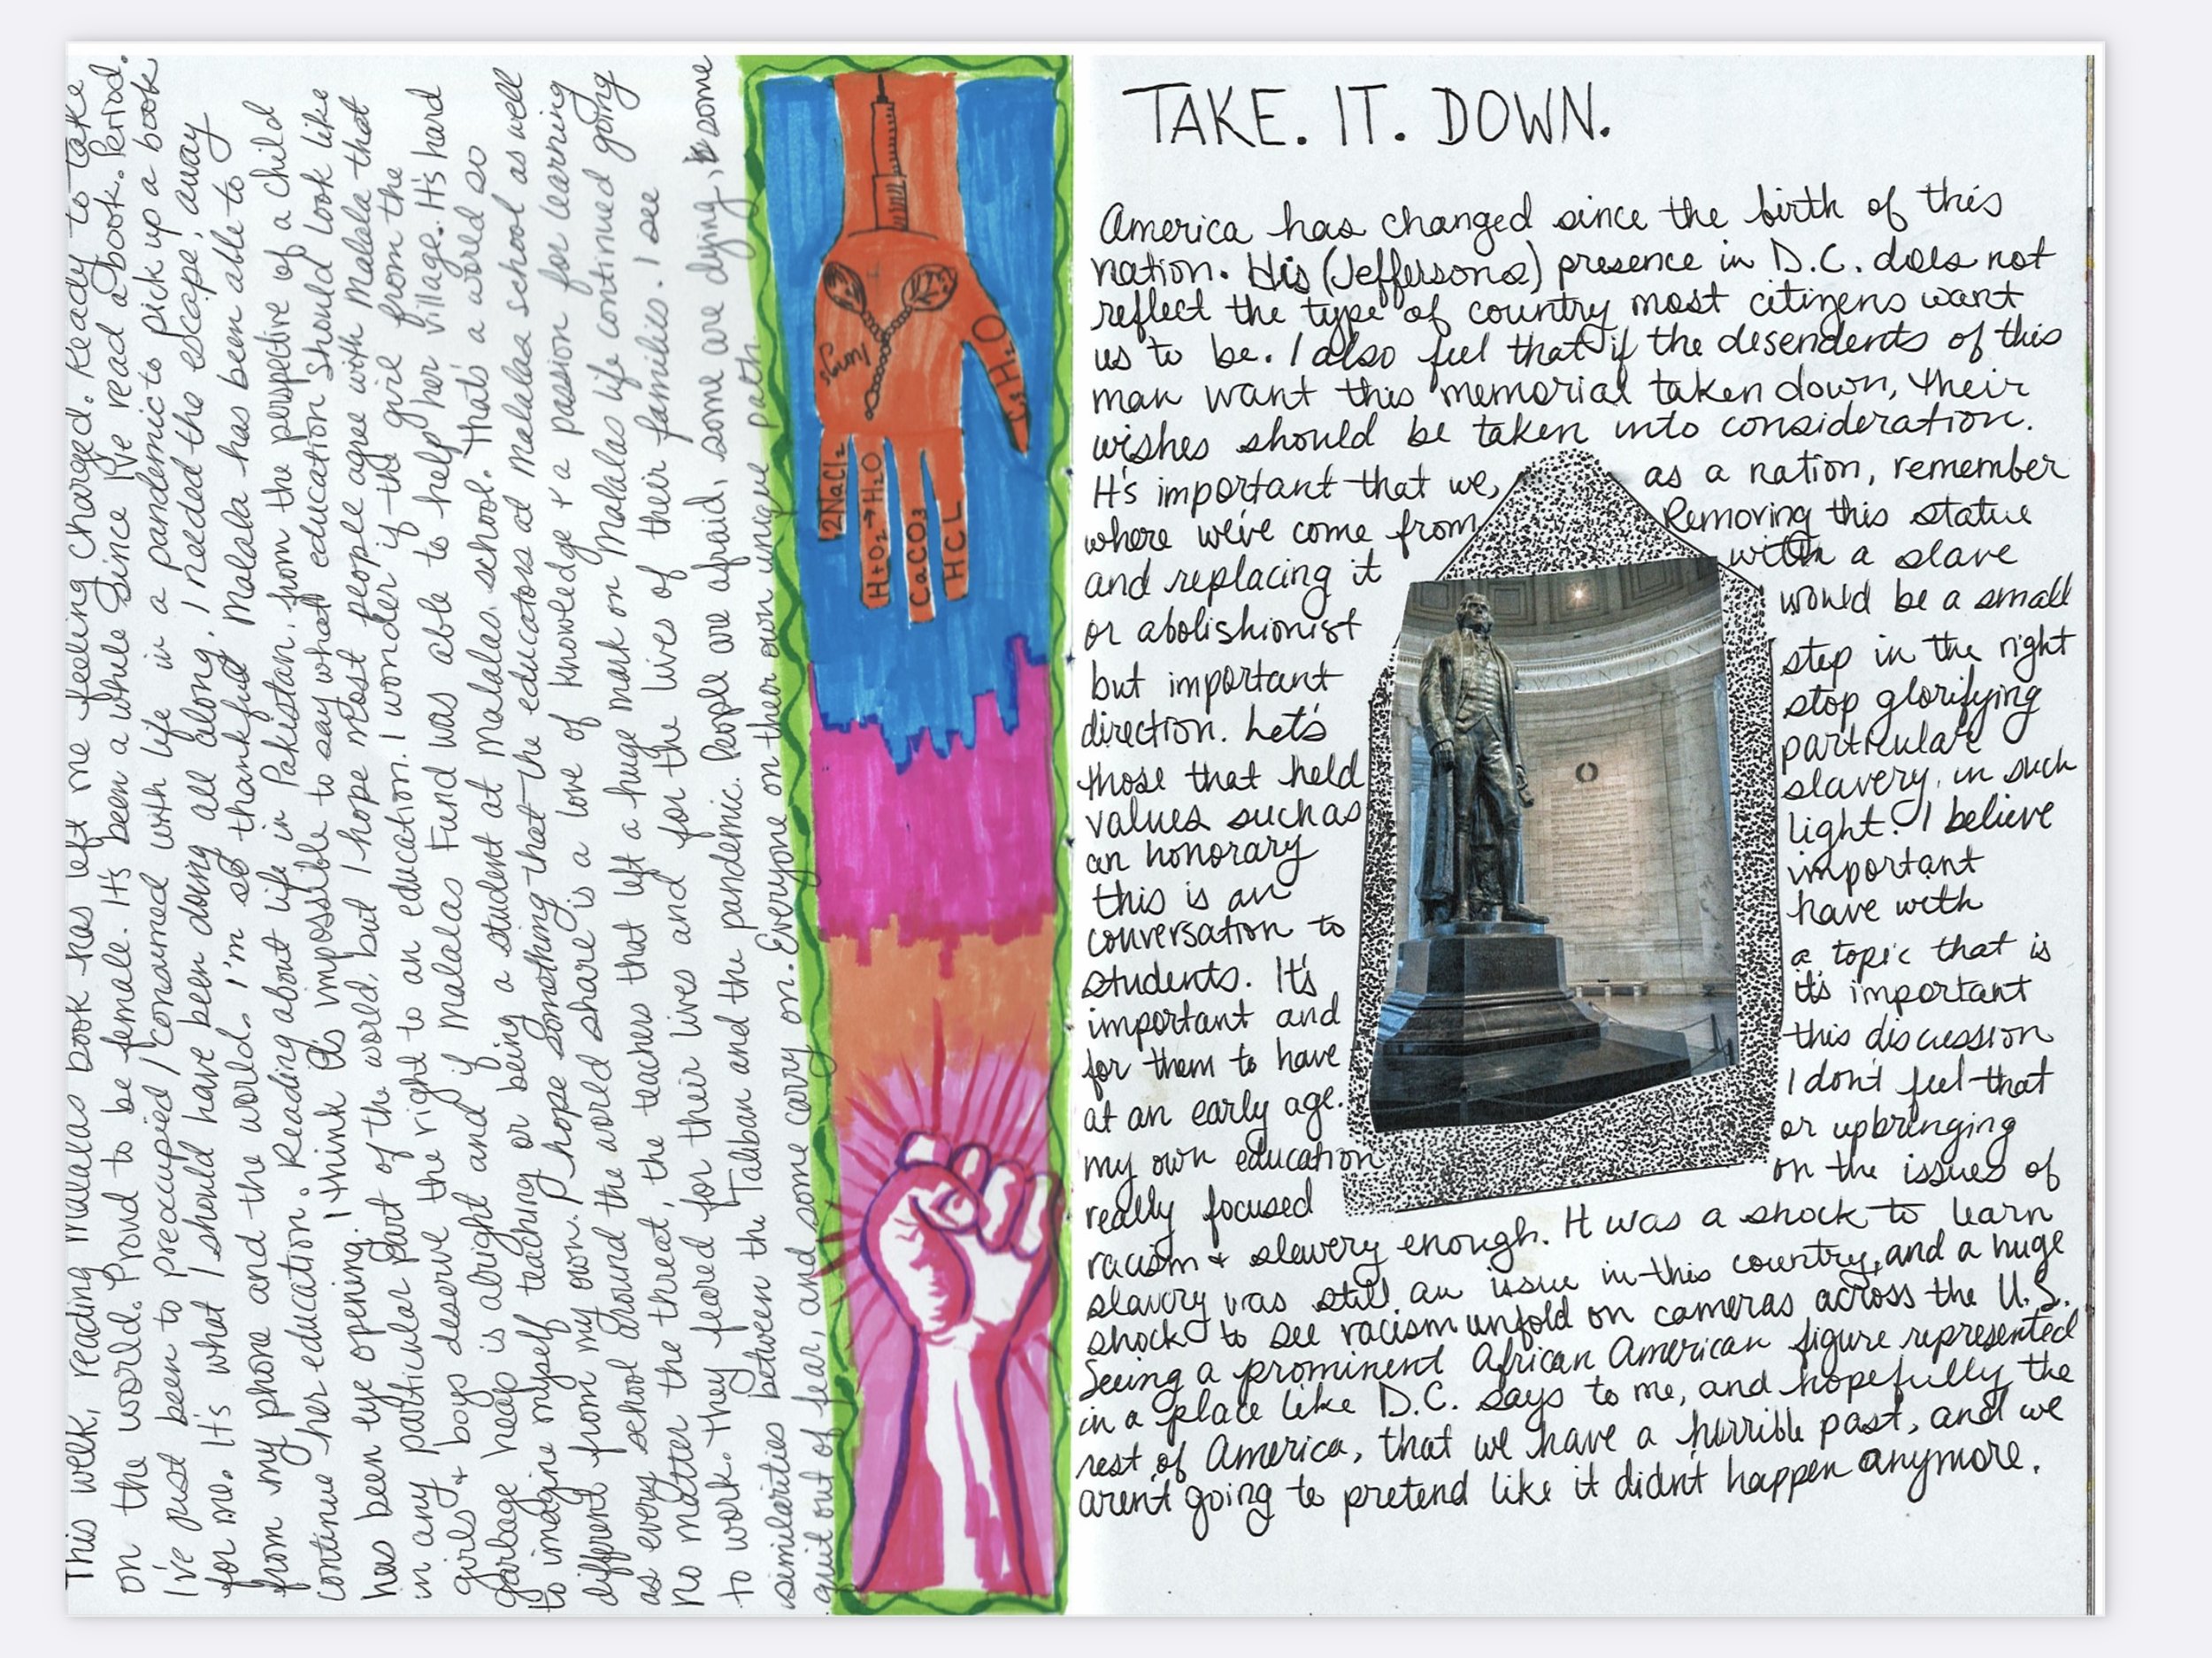 This week, reading Malalas book has left me feeling charged. Ready to take
on the world. Proud to be female. It's been a while since I've read a book. Period.
I've just been to preoccupied / consumed with life in a pandemic to pick up a book
for me. It's what I should have been doing all along. I needed the escape, away
from my phone and the world. I'm so thankful Malala has been able to
continue her education. Reading about life in Pakistan, from the perspective of a child
has been eye opening. I think it's impossible to say what education should look like
in any particular part of the world, but I hope most people agree with Malala that
girls + boys deserve the right to an education. I wonder if the girl from the
garbage heap is alright and if Malalas Fund was able to help her village. It's hard
to imagine myself teaching or being a student at Malalas school. That's a world so
different from my own. I hope something that the educators at Malalas school as well
as every school around the world share is a love of knowledge + a passion for learning
No matter the threat, the teachers that left a huge mark on Malalas life continued going
to work. They feared for their lives and for the lives of their families. I see
similarities between the Taliban and the pandemic. People are afraid, some are dying, some
quit out of fear, and some carry on. Everyone on their own unique path.
slam!
2NaCl2
H+O2→H2O
CaCO3
HCL
TAKE. IT. DOWN.
America has changed since the birth of this
nation. His (Jeffersons) presence in D.C. does not
reflect the type of country most citizens want
us to be. I also feel that if the desendents of this
man want this memorial taken down, their
wishes should be taken into consideration.
It's important that we, as a nation, remember
where we've come from Removing this statue
and replacing it with a slave
or abolishionist would be a small
but important step in the right
direction. Let's stop glorifying
those that held particular
values such as slavery, in such
an honorary light. I believe
this is an important
conversation to have with
students. It's a topic that is
important and it's important
for them to have this discussion
at an early age. I don't feel that
my own education or upbringing
really focused on the issues of
racism + slavery enough. It was a shock to learn
slavery was still an issue in this country, and a huge
shock to see racism unfold on cameras across the U.S.
Seeing a prominent African American figure represented
in a place like D.C. says to me, and hopefully the
rest of America, that we have a horrible past, and we
aren't going to pretend like it didn't happen anymore.